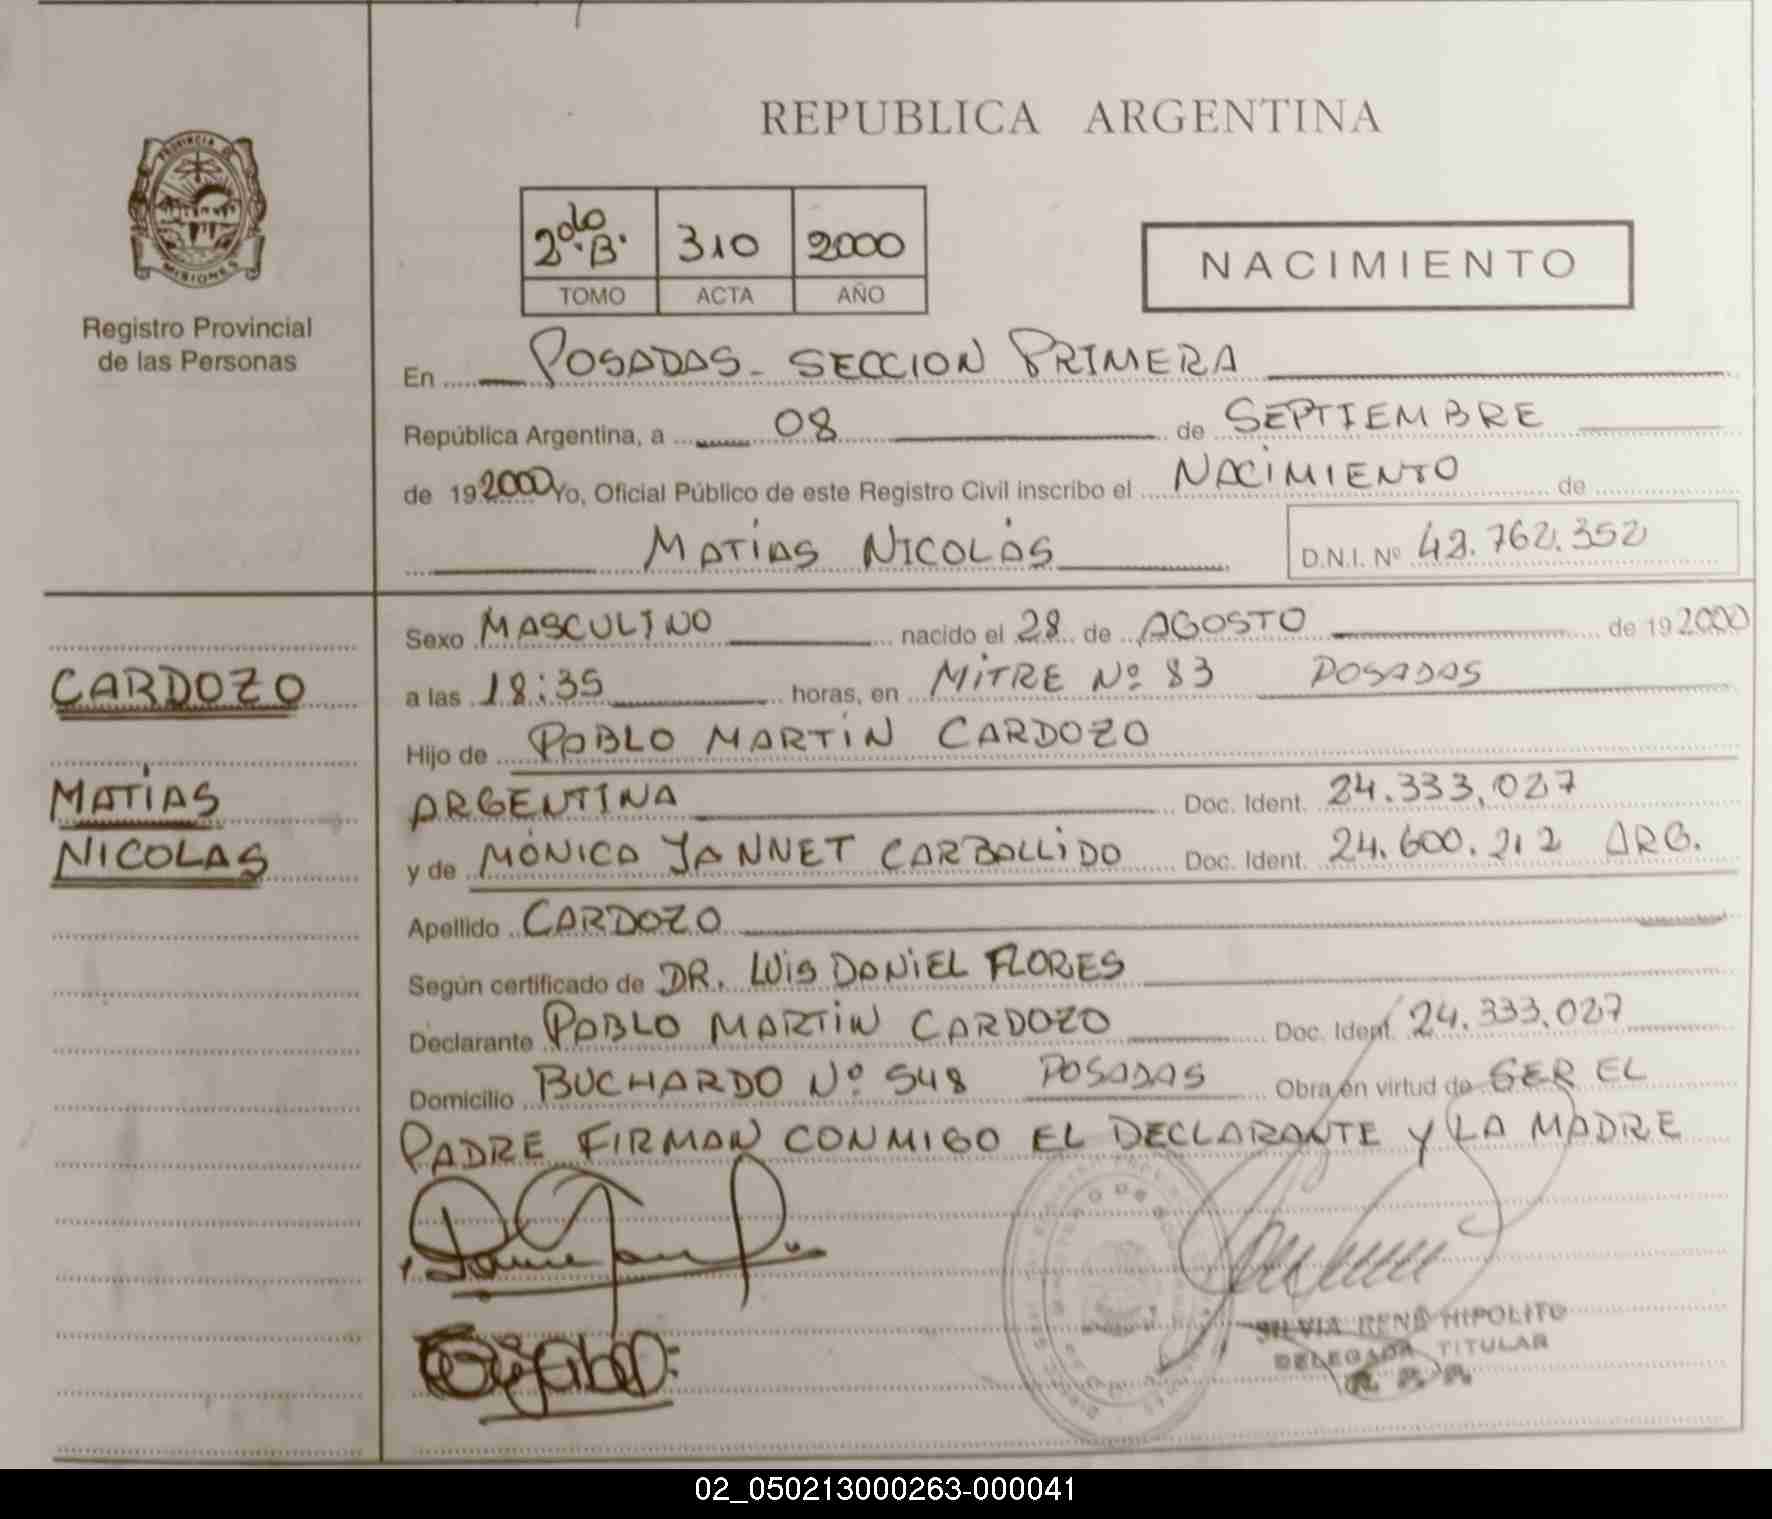 REPUBLICA ARGENTINA
PROVINCIA DE
MISIONES
Registro Provincial
de las Personas
2do B. 310 2000
TOMO ACTA AÑO
NACIMIENTO
En POSADAS - SECCION PRIMERA
República Argentina, a 08 de SEPTIEMBRE
de 19 2000 Yo, Oficial Público de este Registro Civil inscribo el NACIMIENTO de
MATÍAS NICOLÁS D.N.I. Nº 42.762.352
Sexo MASCULINO nacido el 28 de AGOSTO de 19 2000
CARDOZO
a las 18:35 horas, en MITRE Nº 83 POSADAS
Hijo de PABLO MARTÍN CARDOZO
MATÍAS
ARGENTINA Doc. Ident. 24.333.027
NICOLAS
y de MÓNICA JANNET CARBALLIDO Doc. Ident. 24.600.212 ARG.
Apellido CARDOZO
Según certificado de DR. LUIS DANIEL FLORES
Declarante PABLO MARTIN CARDOZO Doc. Ident. 24.333.027
Domicilio BUCHARDO Nº 548 POSADAS Obra en virtud de SER EL
PADRE FIRMAN CONMIGO EL DECLARANTE Y LA MADRE
SILVIA RENÉ HIPOLITO
DELEGADA TITULAR
02_050213000263-000041